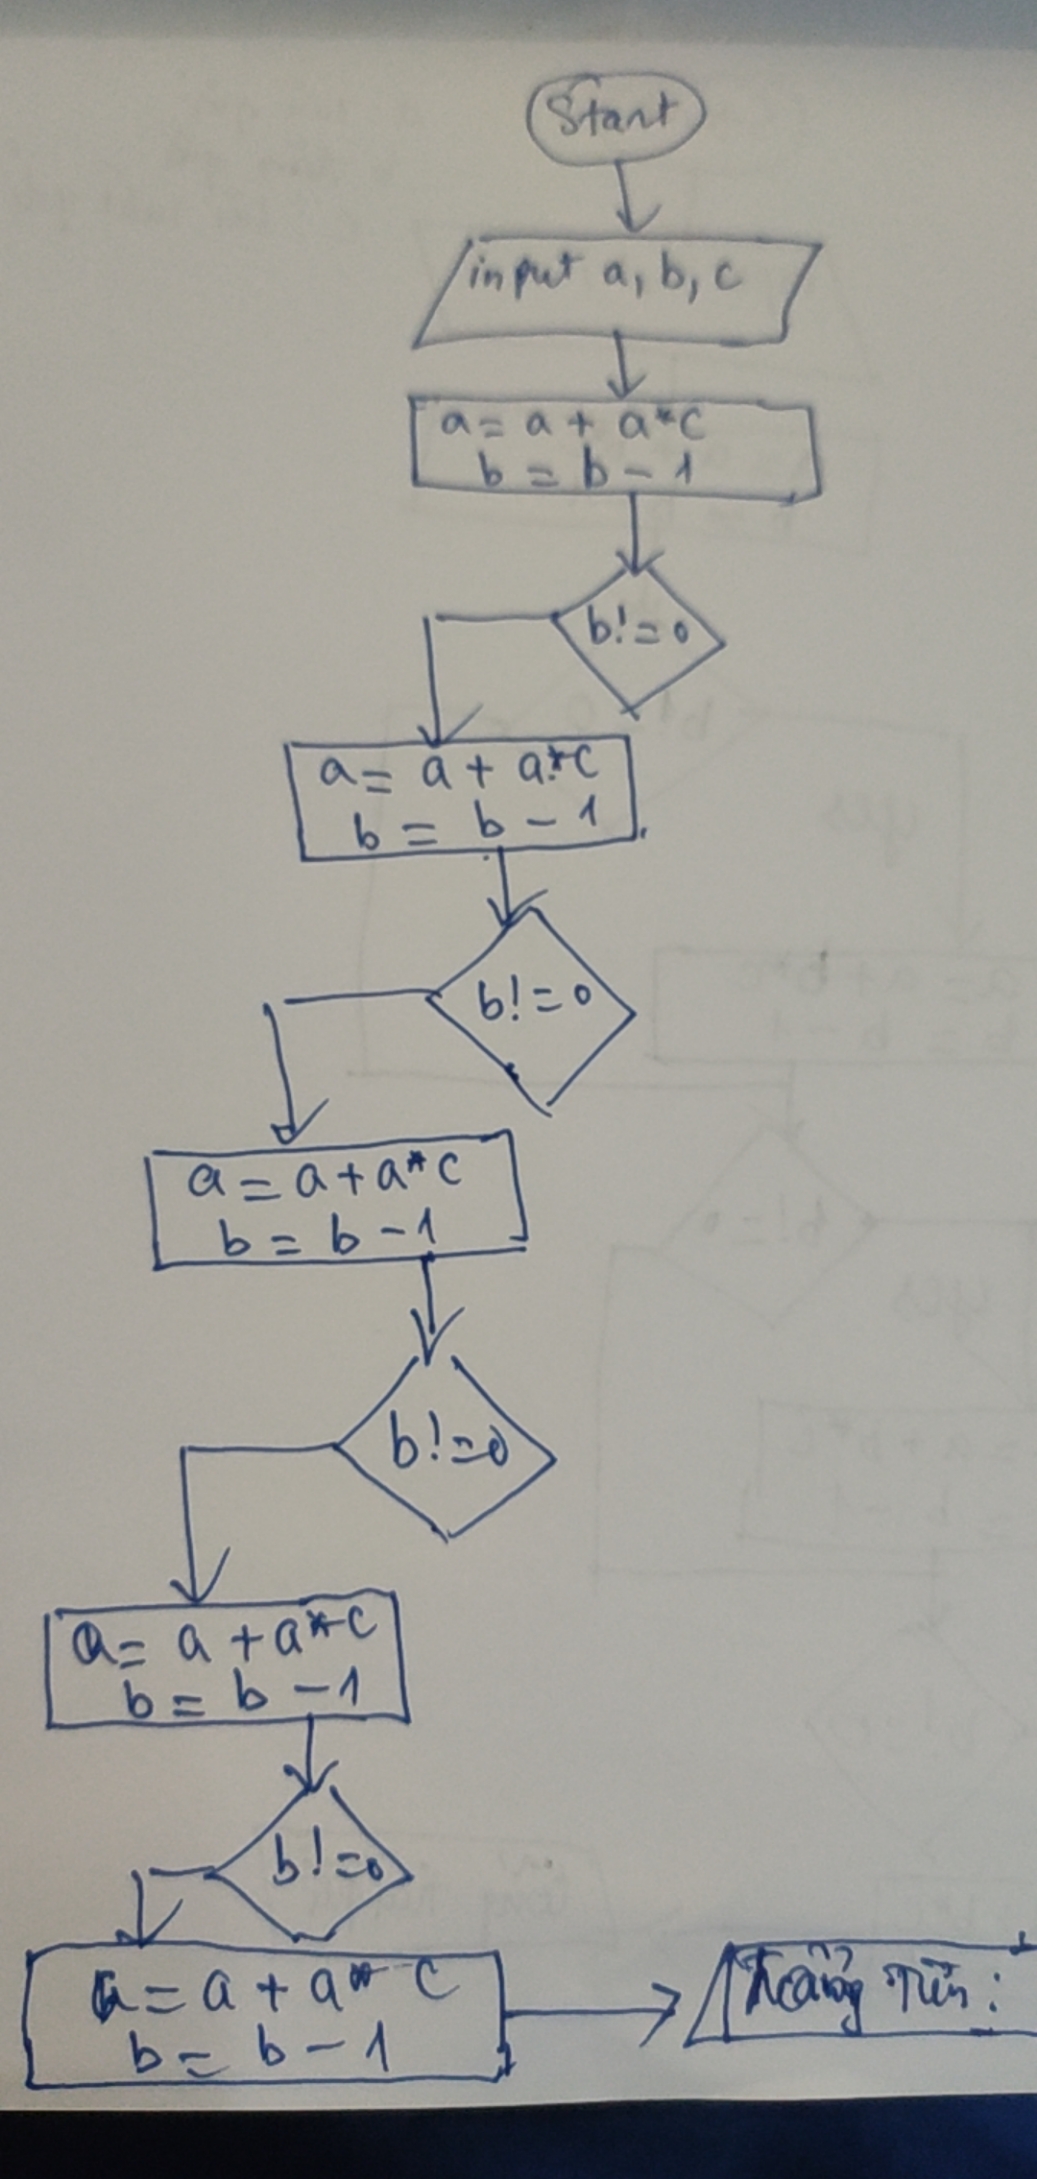 Start
input a, b, c
a = a + a*c
b = b - 1
b != 0
a = a + a*c
b = b - 1
b != 0
a = a + a*c
b = b - 1
b != 0
a = a + a*c
b = b - 1
b != 0
a = a + a* c
b = b - 1